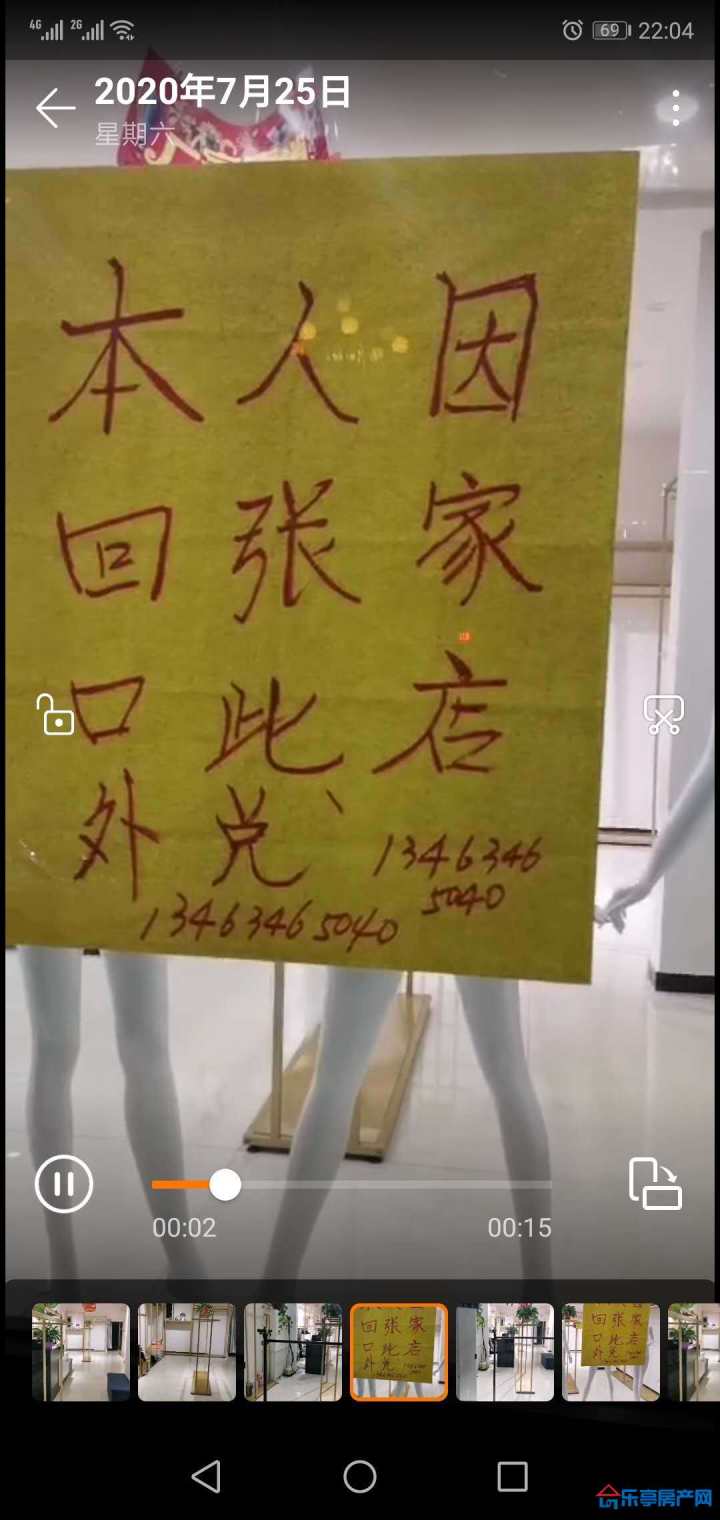 4G 2G 69 22:04
2020年7月25日
星期六
本人因
回张家
口此店
外兑、
13463465040
13463465040
00:02
00:15
回张家
口此店
外兑
回张家
口此店
外兑
乐亭房产网